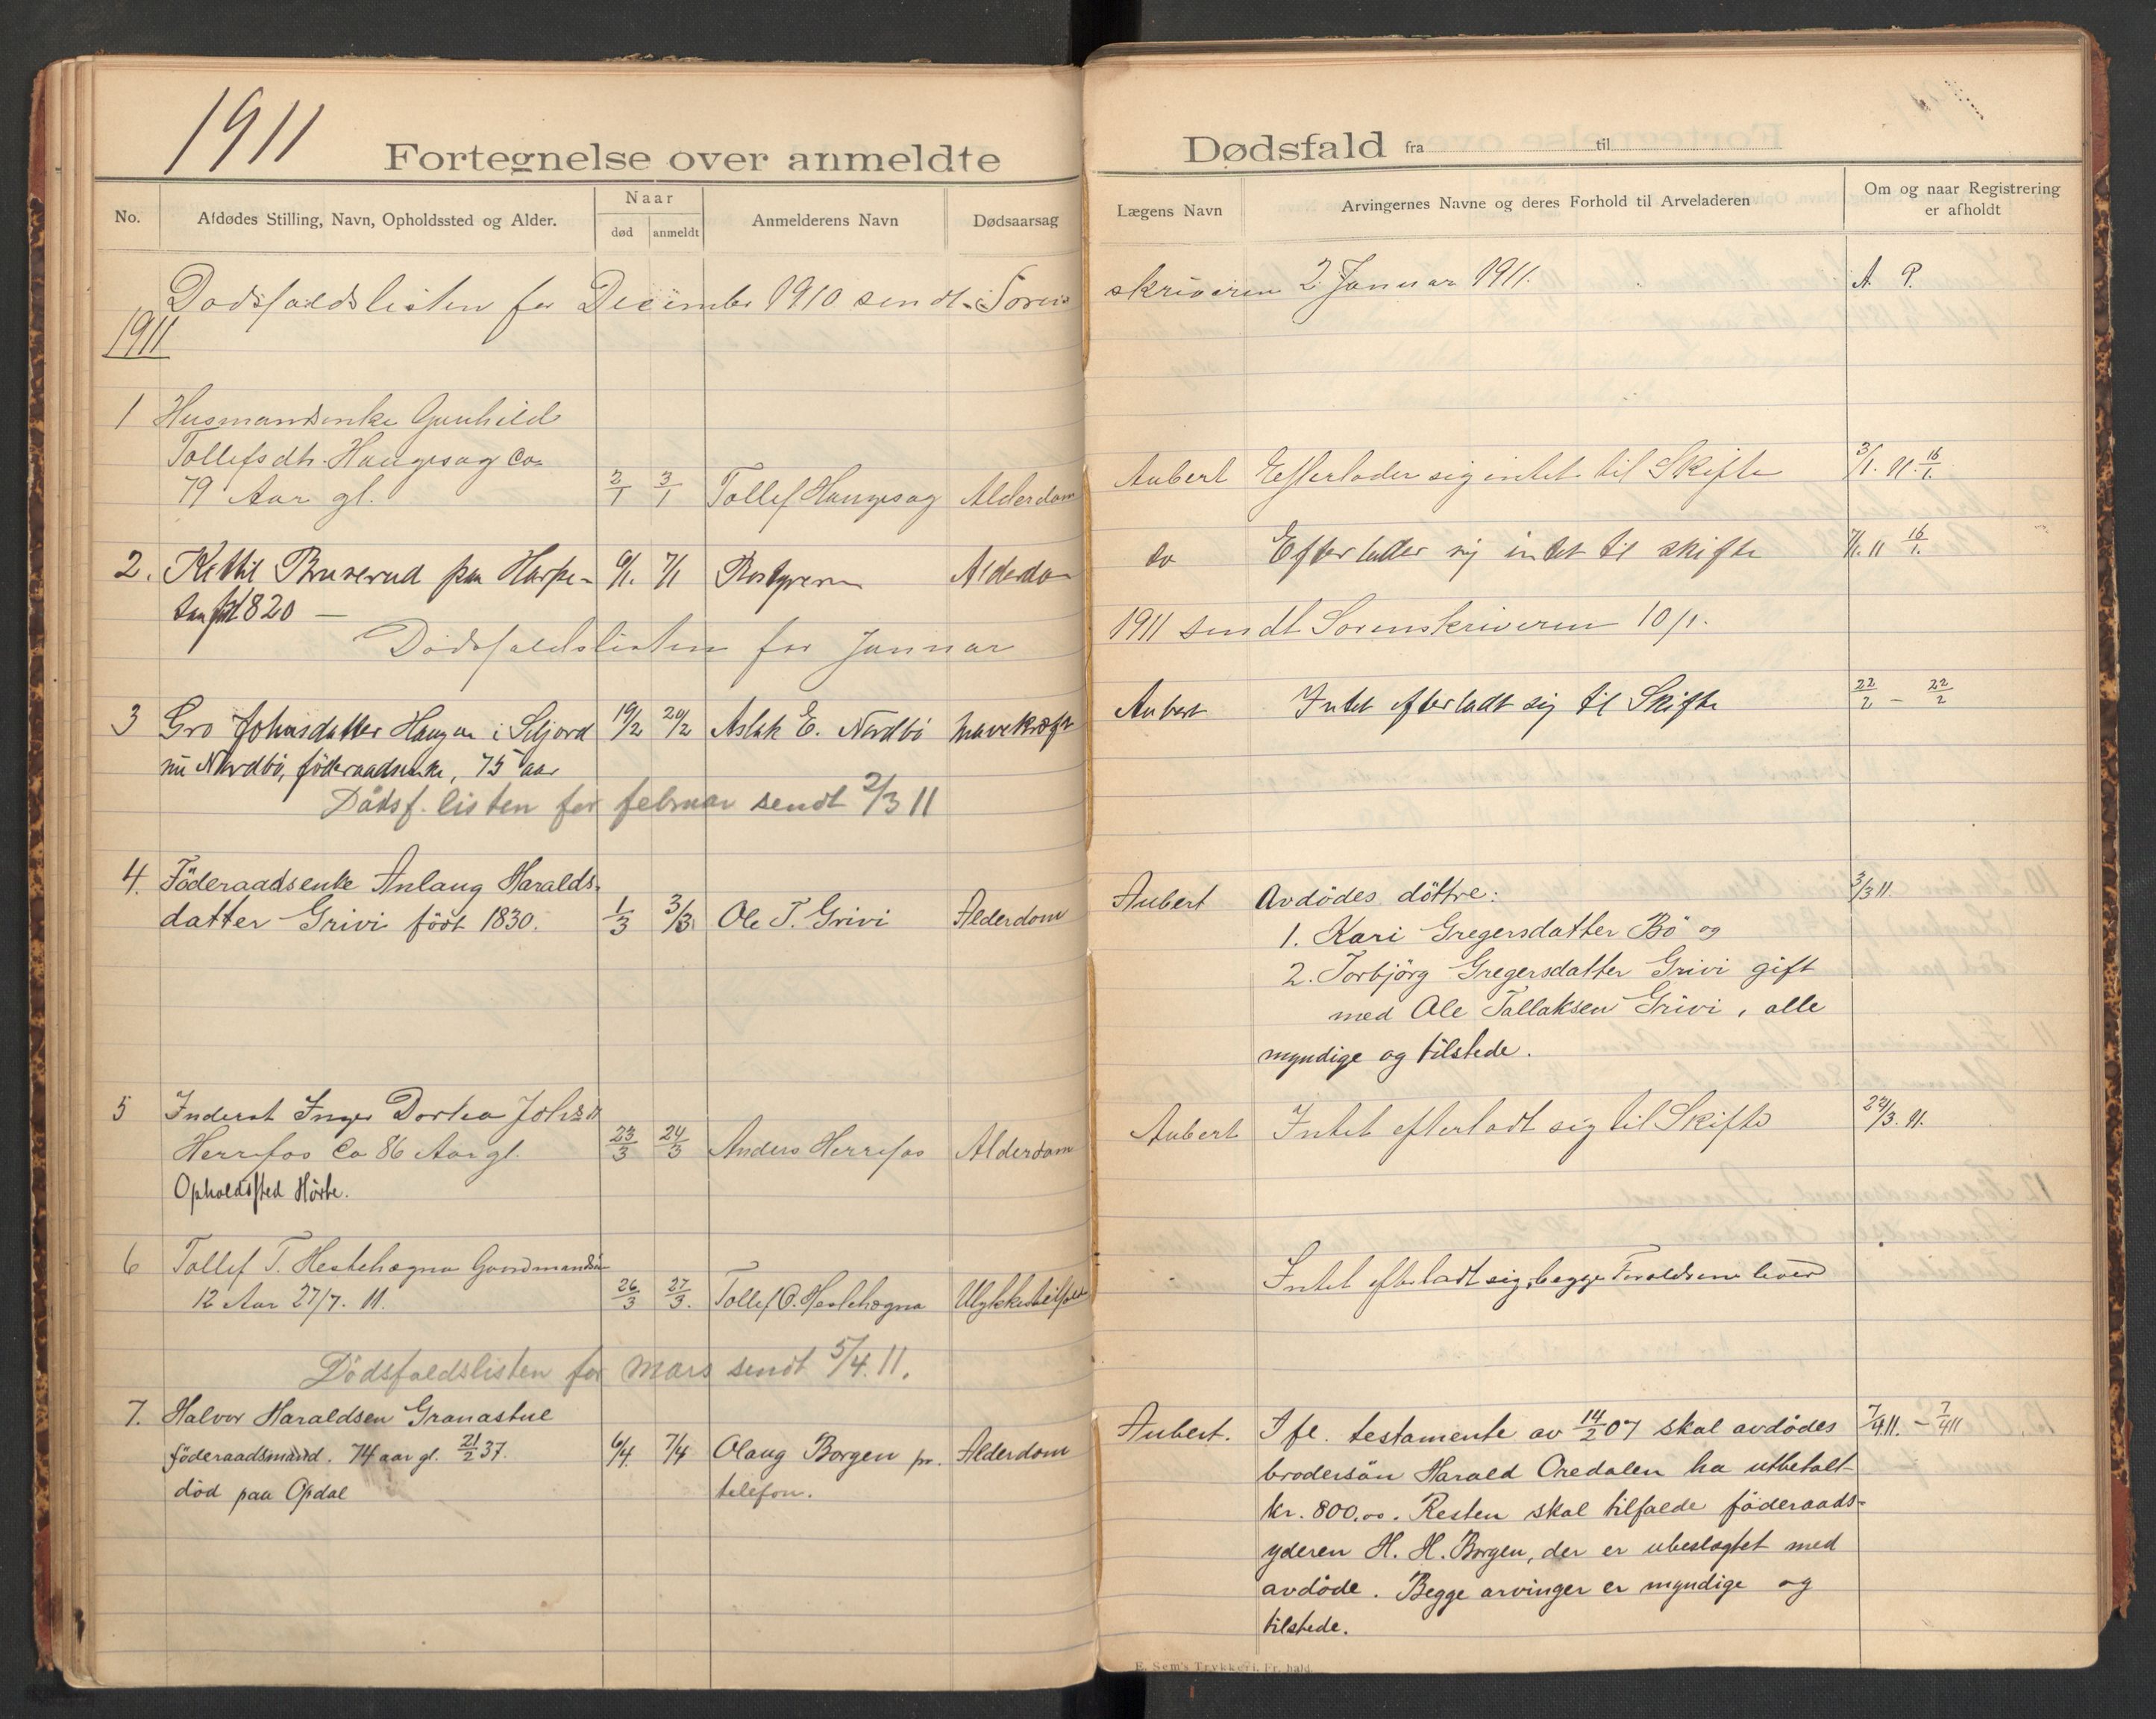 1911
Fortegnelse over anmeldte
No.
Afdødes Stilling, Navn, Opholdssted og Alder.
Naar
død
anmeldt
Anmelderens Navn
Dødsaarsag
Dødsfaldslisten for December 1910 sendt Soren
1911
1 Husmandsenke Gunhild
Tollefsdtr. Haugesag ca
79 Aar gl. 2/1 3/1 Tollef Haugesag Alderdom
2. Kettil Bruserud paa Harpe- 6/1. 7/1 Alderdom
1820 —
Dødsfaldslisten for Januar
3 Gro Johnsdatter Haugen i Seljord 19/2 20/2 Aslak E. Nordbö Mavekræft
nu Nordbö, föderaadsenke, 75 aar
Dödsf. listen for februar sendt 2/3 11
4. Föderaadsenke Anlaug Haralds-
datter Grivi född 1830. 1/3 3/3 Ole T. Grivi Alderdom
5 Inderst Inger Dortea Johsn
Herrefos Ca 86 Aar gl. 23/3 24/3 Anders Herrefos Alderdom
Opholdssted Hörte.
6 Tollef T. Hestehagna Gaardmandsön
12 Aar 27/7. 11. 26/3 27/3. Tollef O. Hestehagna Ulykkestilfæld
Dödsfaldslisten for mars sendt 5/4. 11.
7. Halvor Haraldsen Granastue
föderaadsmand. 74 aar gl. 21/2 37. 6/4. 7/4 Olaug Borgen pr. Alderdom
död paa Opdal telefon.
Dødsfald fra til
Lægens Navn
Arvingernes Navne og deres Forhold til Arveladeren
Om og naar Registrering
er afholdt
skriveren 2 Januar 1911. A. P.
Aubert Efterlader sig intet til Skifte 3/1. 11. 16/1.
do Efterlader sig intet til skifte 7/1. 11 16/1.
1911 sendt Sorenskriveren 10/1.
Aubert Intet efterladt sig til Skifte 22/2 - 22/2
Aubert Avdödes döttre: 3/3 11
1. Kari Gregersdatter Bö og
2. Torbjörg Gregersdatter Grivi gift
med Ole Tallaksen Grivi, alle
myndige og tilstede.
Aubert Intet efterladt sig til Skifte 24/3. 11.
Intet efterladt sig, begge Foreldrene lever
Aubert. Ifl. testamente av 14/2 07 skal avdödes 7/4 11. - 7/4 11
brodersön Harald Oredalen ha utbetalt
kr. 800,00. Resten skal tilfalde föderaads-
yderen H. H. Borgen, der er ubeslagtet med
avdöde. Begge arvinger er myndige og
tilstede.
E. Sem's Trykkeri, Fr.hald.